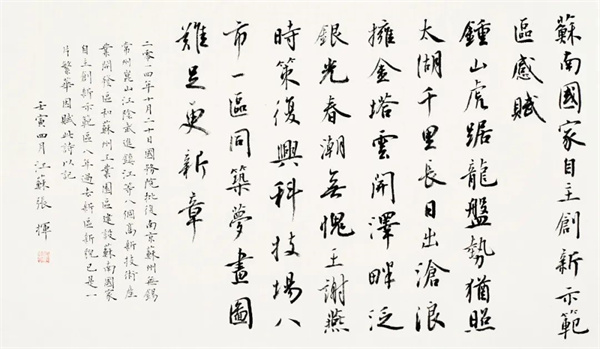 蘇南國家自主創新示範
區感賦
鍾山虎踞龍盤勢猶照
太湖千里長日出滄浪
擁金塔雲開澤畔泛
銀光春潮無愧王謝燕
時策復興科技場八
市一區同築夢畫圖
難足更新章
二零一四年十月二十日國務院批復南京蘇州無錫
常州崑山江陰武進鎮江等八個高新技術產
業開發區和蘇州工業園區建設蘇南國家
自主創新示範區八年過去新區新貌已是一
片繁華因賦此詩以記
壬寅四月江蘇張輝